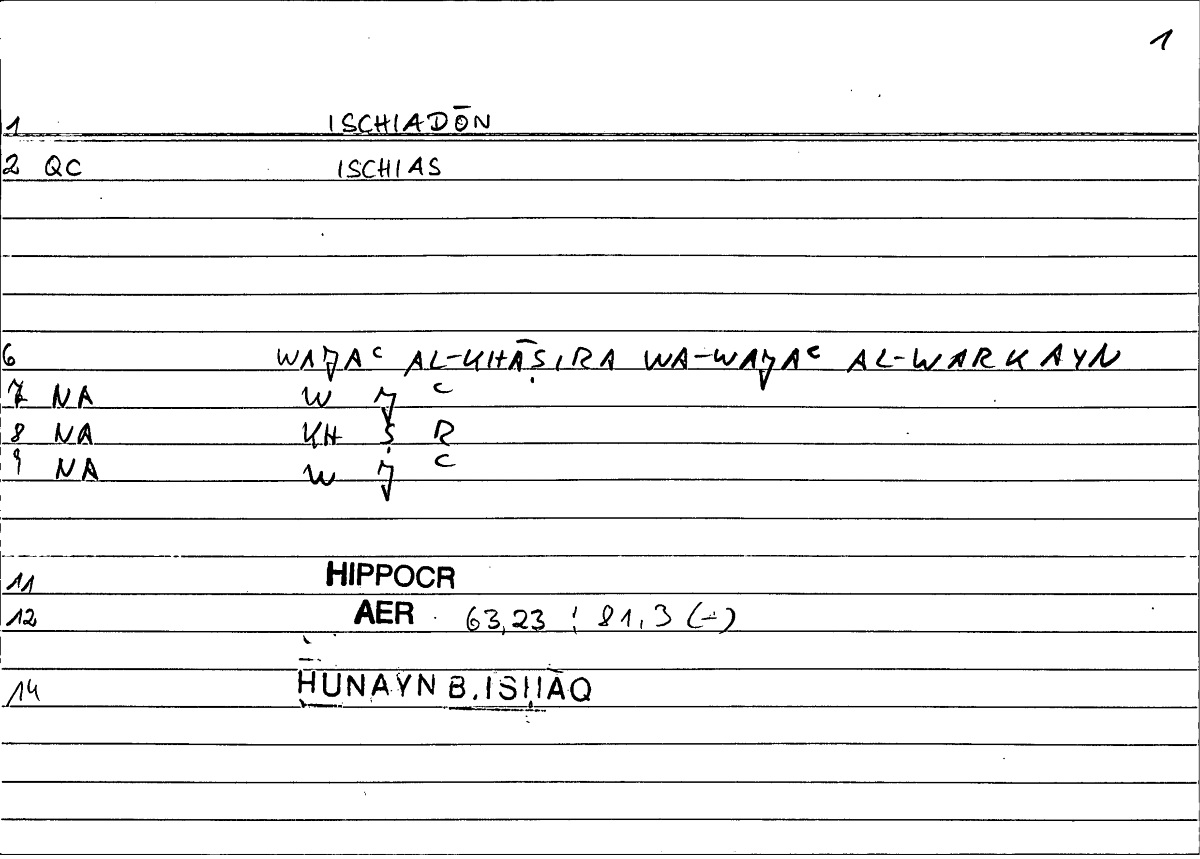 1
1 ISCHIADŌN
2 QC ISCHIAS
6 WAJAᶜ AL-KHĀṢIRA WA-WAJAᶜ AL-WARKAYN
7 NA W J ᶜ
8 NA KH Ṣ R
9 NA W J ᶜ
11 HIPPOCR
12 AER 63,23 ; 81,3 (-)
14 ḤUNAYN B. ISḤĀQ